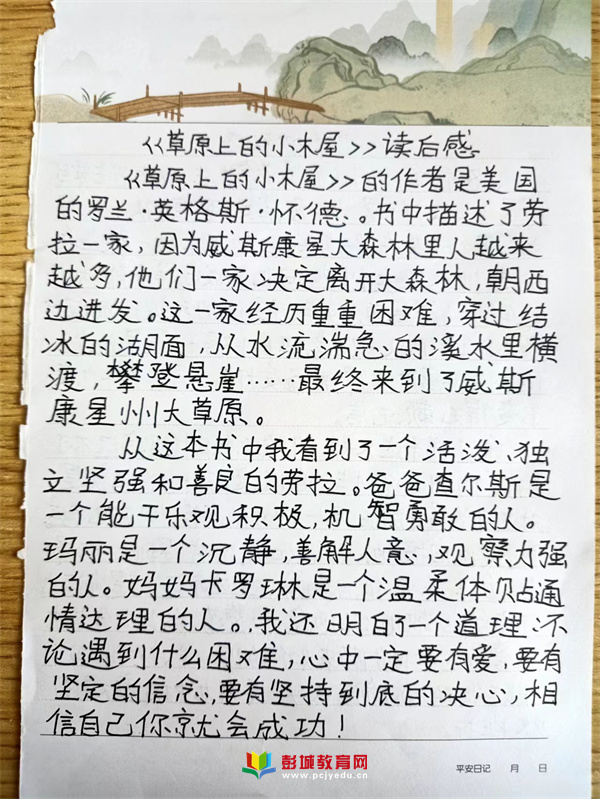 《草原上的小木屋》读后感
《草原上的小木屋》的作者是美国
的罗兰·英格斯·怀德。书中描述了劳
拉一家，因为威斯康星大森林里人越来
越多，他们一家决定离开大森林，朝西
边进发。这一家经历重重困难，穿过结
冰的湖面，从水流湍急的溪水里横
渡，攀登悬崖……最终来到了威斯
康星州大草原。
从这本书中我看到了一个活泼、独
立坚强和善良的劳拉。爸爸查尔斯是
一个能干乐观积极，机智勇敢的人。
玛丽是一个沉静，善解人意，观察力强
的人。妈妈卡罗琳是一个温柔体贴通
情达理的人。我还明白了一个道理：不
论遇到什么困难，心中一定要有爱，要有
坚定的信念，要有坚持到底的决心，相
信自己你就会成功！
彭城教育网
www.pcjyedu.cn
平安日记 月 日